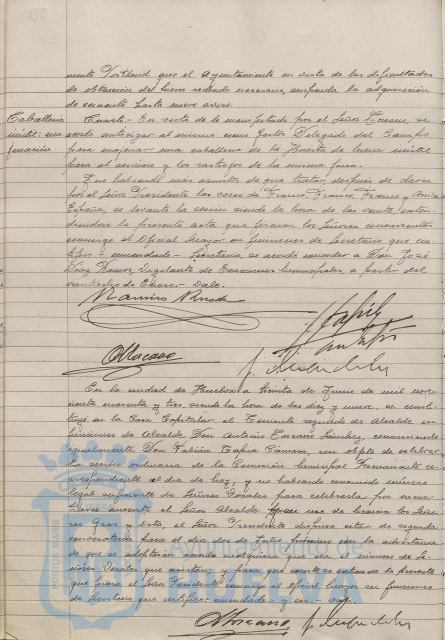 mento Portland que el Ayuntamiento en vista de las dificultades
de obtención del hierro redondo necesario, suspenda la adquisición
de cemento hasta nuevo aviso.
Caballería
inútil: ena
genación
Cuarto.- En vista de lo manifestado por el Señor Toscano, se
acordó autorizar al mismo como Gestor Delegado del Campo
para enajenar una caballería de la Huerta de inútil
para el servicio y los rastrojos de la misma finca.
Y no habiendo más asuntos de que tratar, después de darse
por el Señor Presidente las voces de Franco, Franco, Franco y Arriba
España, se levantó la sesión siendo la hora de las veinte, exten-
diéndose la presente acta que firman los Señores concurrentes
conmigo el Oficial Mayor en funciones de Secretario que cer-
tifico - enmendado - Secretario, se acordó conceder a Don José
Díaz Ramos, Vigilante de Exacciones Municipales, a partir del
veintiocho de Enero - Vale.
Toscano
En la ciudad de Huelva a treinta de Junio de mil nove-
cientos cuarenta y tres, siendo la hora de las diez y nueve, se consti-
tuyó en la Casa Capitular el Teniente segundo de Alcalde en
funciones de Alcalde, Don Antonio Toscano Sánchez, concurriendo
igualmente Don Fabián Tapia Cámara, con objeto de celebrar
la sesión ordinaria de la Comisión Municipal Permanente co-
rrespondiente al día de hoy, y no habiendo concurrido número
legal suficiente de Señores Vocales para celebrarla por encon-
trarse ausente el Señor Alcalde y uso de licencia los Seño-
res y el Señor Presidente dispuso citar de segunda
convocatoria para el día dos de Julio próximo con la advertencia
de que se adoptarán acuerdos cualquiera que sea el número de Se-
ñores Vocales que asistan, y para que conste se extiende la presente
que firma el Señor Presidente conmigo el Oficial Mayor en funciones
de Secretario que certifico - enmendado - y en - vale.
Toscano
PORTUS MARIS